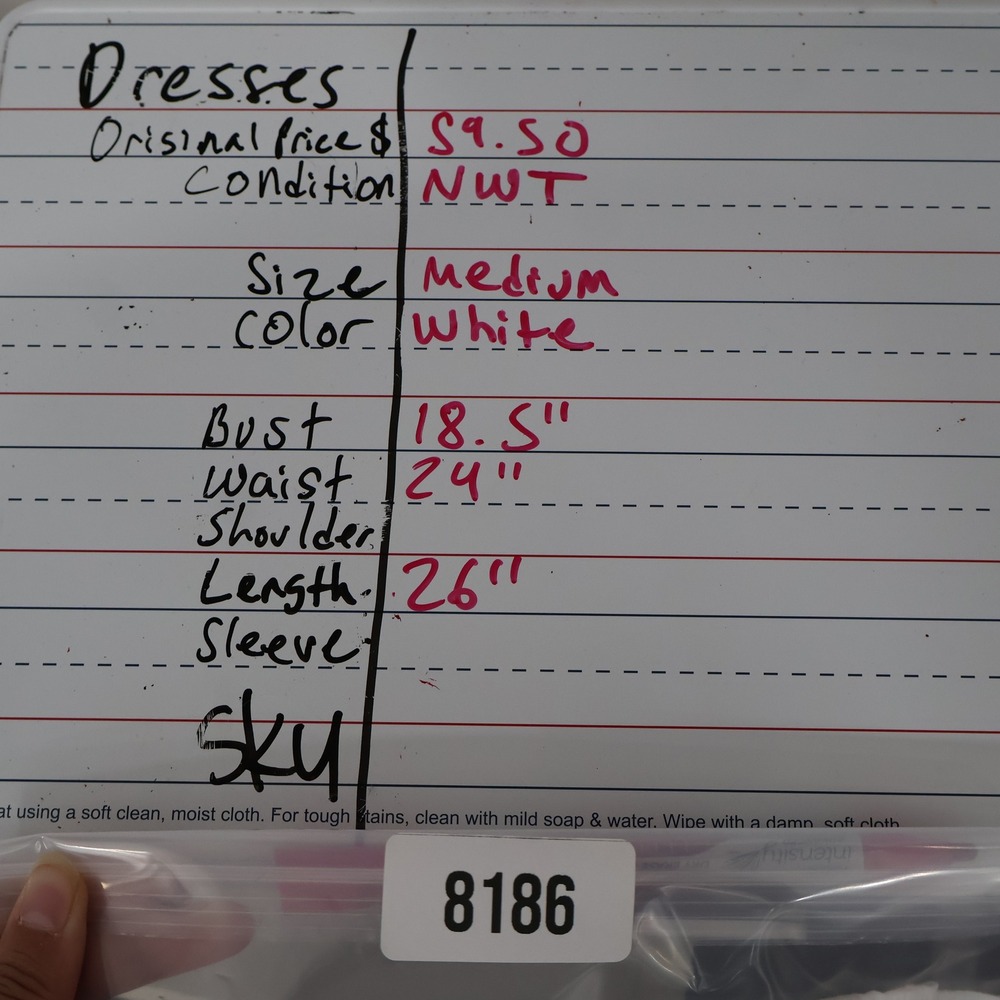 Dresses
Original Price $ 59.50
Condition NWT
Size Medium
Color White
Bust 18.5"
Waist 24"
Shoulder
Length 26"
Sleeve
Sky
at using a soft clean, moist cloth. For tough tains, clean with mild soap & water. Wipe with a damp, soft cloth
intensity
8186